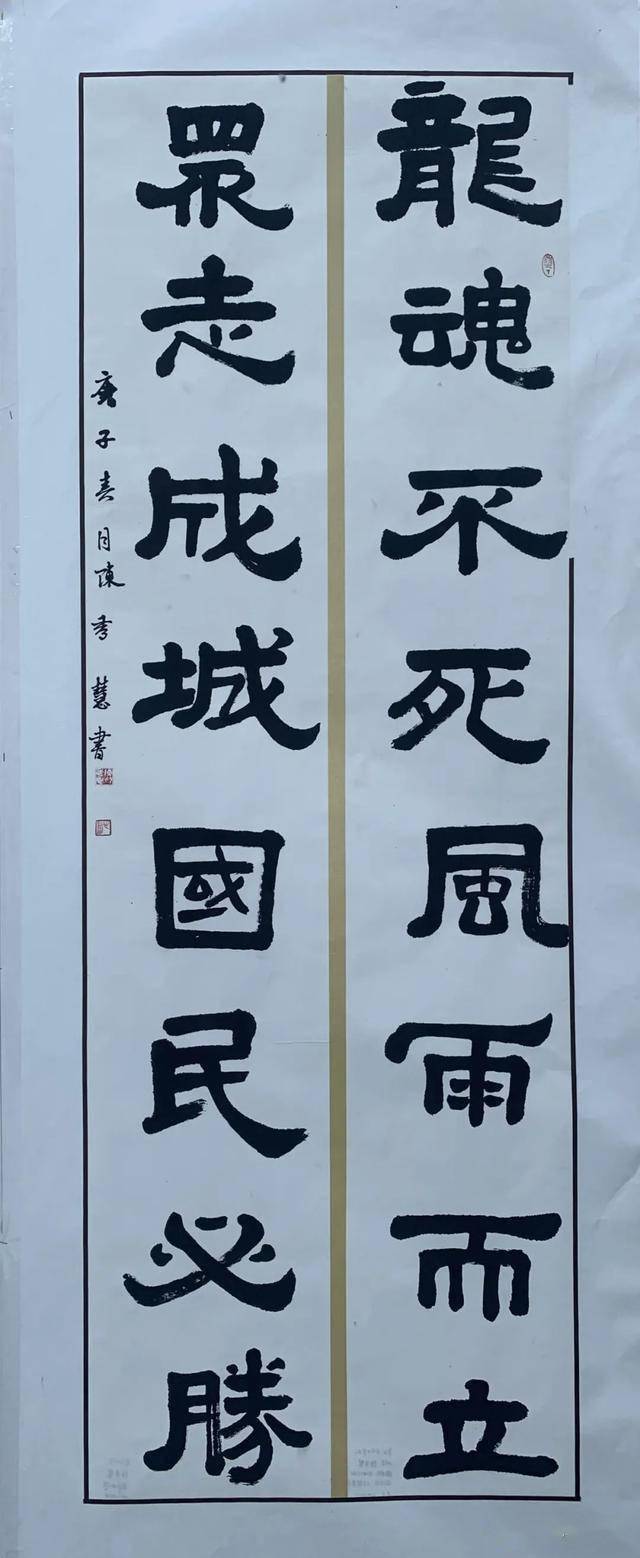 龍魂不死風雨而立
眾志成城國民必勝
庚子春月陳秀慧書